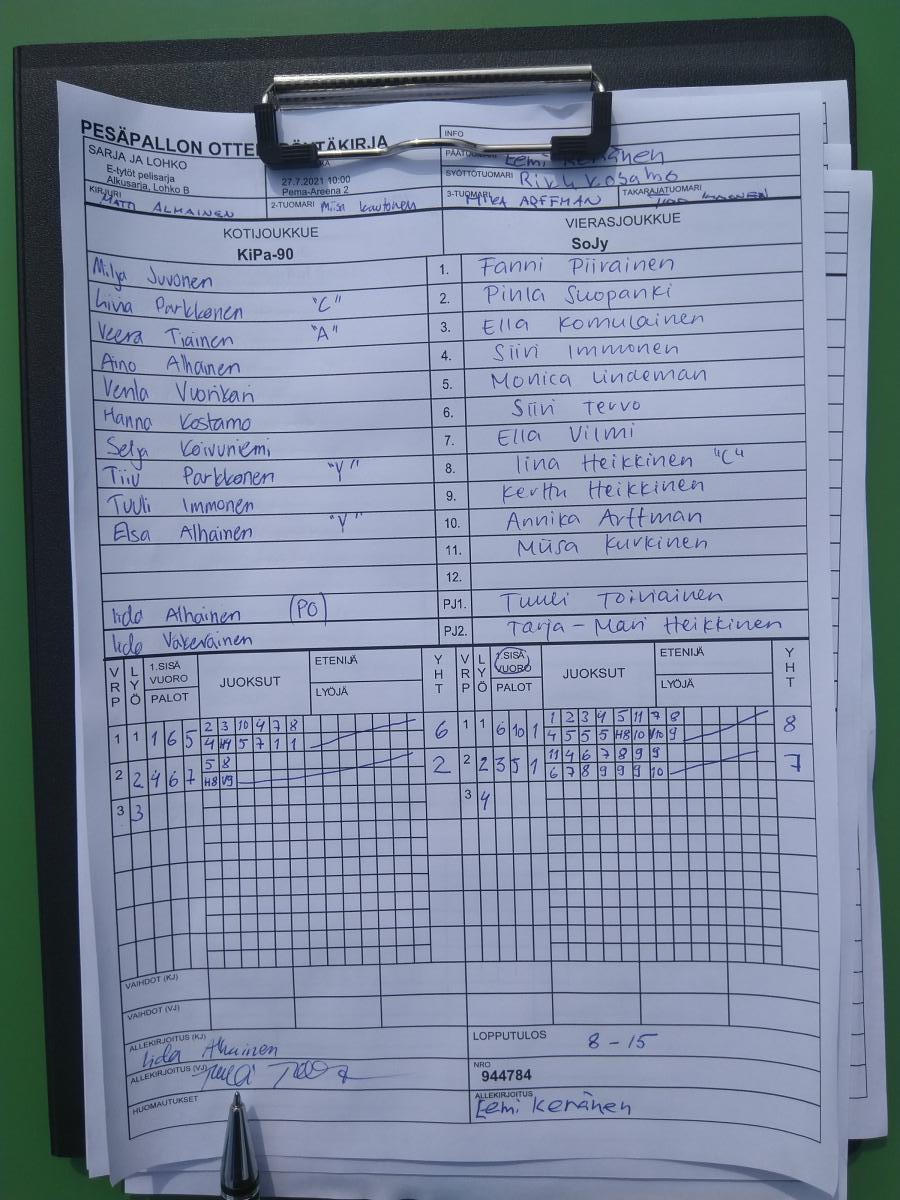 PESÄPALLON OTTE
SARJA JA LOHKO
E-tytöt pelisarja
Alkusarja, Lohko B
27.7.2021 10:00
Pema-Areena 2
INFO
PÄÄTUOMARI Eemi Keränen
SYÖTTÖTUOMARI
3-TUOMARI MIKA ARFFMAN
TAKARAJATUOMARI
KIRJURI MATTI ALHAINEN
2-TUOMARI Miisa Kautonen
KOTIJOUKKUE
KiPa-90
VIERASJOUKKUE
SoJy
Milja Juvonen 1. Fanni Piirainen
Liivia Parkkonen "C" 2. Pinla Suopanki
Veera Tiainen "A" 3. Ella Komulainen
Aino Alhainen 4. Siiri Immonen
Venla Vuorikari 5. Monica Lindeman
Hanna Kostamo 6. Siiri Tervo
Selja Koivuniemi 7. Ella Vilmi
Tiiu Parkkonen "V" 8. Iina Heikkinen "C"
Tuuli Immonen 9. Kerttu Heikkinen
Elsa Alhainen "V" 10. Annika Arffman
11. Miisa Kurkinen
12.
Iida Alhainen (PO) PJ1. Tuuli Toiviainen
Iida Väkeväinen PJ2. Tarja-Mari Heikkinen
VRP LYÖ 1.SISÄ VUORO PALOT JUOKSUT ETENIJÄ LYÖJÄ YHT VRP LYÖ 1.SISÄ VUORO PALOT JUOKSUT ETENIJÄ LYÖJÄ YHT
2 3 10 4 7 8 1 2 3 4 5 11 7 8
1 1 1 6 5 6 1 1 6 10 1 8
4 H4 5 7 1 1 4 5 5 5 H8 10 V10 9
5 8 11 4 6 7 8 9 9
2 2 4 6 7 2 2 2 3 5 1 7
H8 V9 6 7 8 9 9 9 10
3 3 3 4
VAIHDOT (KJ)
VAIHDOT (VJ)
ALLEKIRJOITUS (KJ) Iida Alhainen
ALLEKIRJOITUS (VJ)
HUOMAUTUKSET
LOPPUTULOS 8-15
NRO
944784
ALLEKIRJOITUS
Eemi Keränen